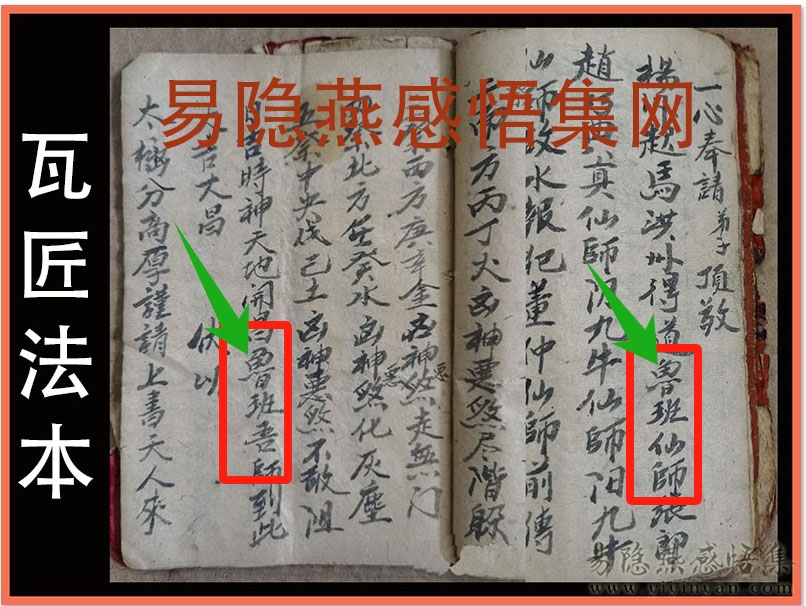 易隐燕感悟集网
瓦匠法本
一心奉請弟子頂敬
楊 趙馬洪州得道魯班仙師張
趙 真仙師阴九牛仙師阳九牛
仙師改水報犯董仲仙師前傳
方丙丁火凶神惡煞尽階躲
西方庚辛金凶神惡煞走無门
北方壬癸水凶神惡煞化灰塵
中央戊己土凶神惡煞不敢阻
吉時神天地開昌魯班吾師到此
大吉大昌 伏以
太極分高厚謹請上書天人來
易隐燕感悟集
www.yiyinyan.com